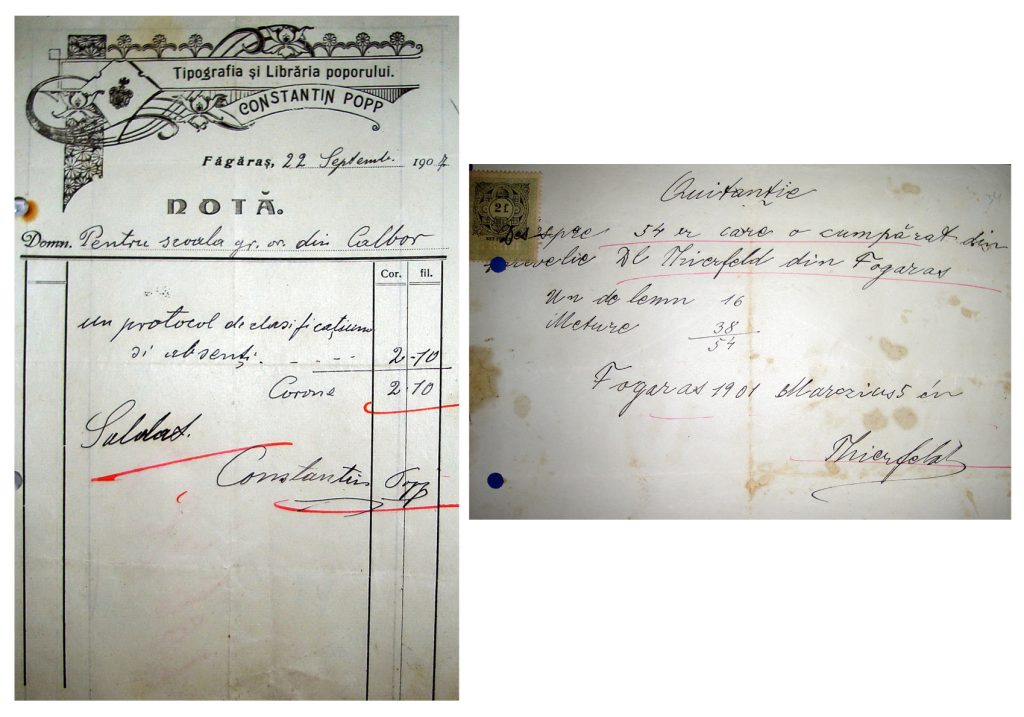 Tipografia și Librăria poporului.
CONSTANTIN POPP
Făgăraș, 22 Septemb. 1907
NOTĂ.
Domn. Pentru scoala gr. or. din Calbor
Cor. fil.
un protocol de clasificațiune
si absenți. - - - - 2 - 10
Corone 2 10
Saldat.
Constantin Popp
Quitanție
2f
Despre 54 cr care o cumpărat din
Dl Thierfeld din Fogaras
Un de lemn 16
Meture 38
54
Fogaras 1901 Marczius 5 én
Thierfeld